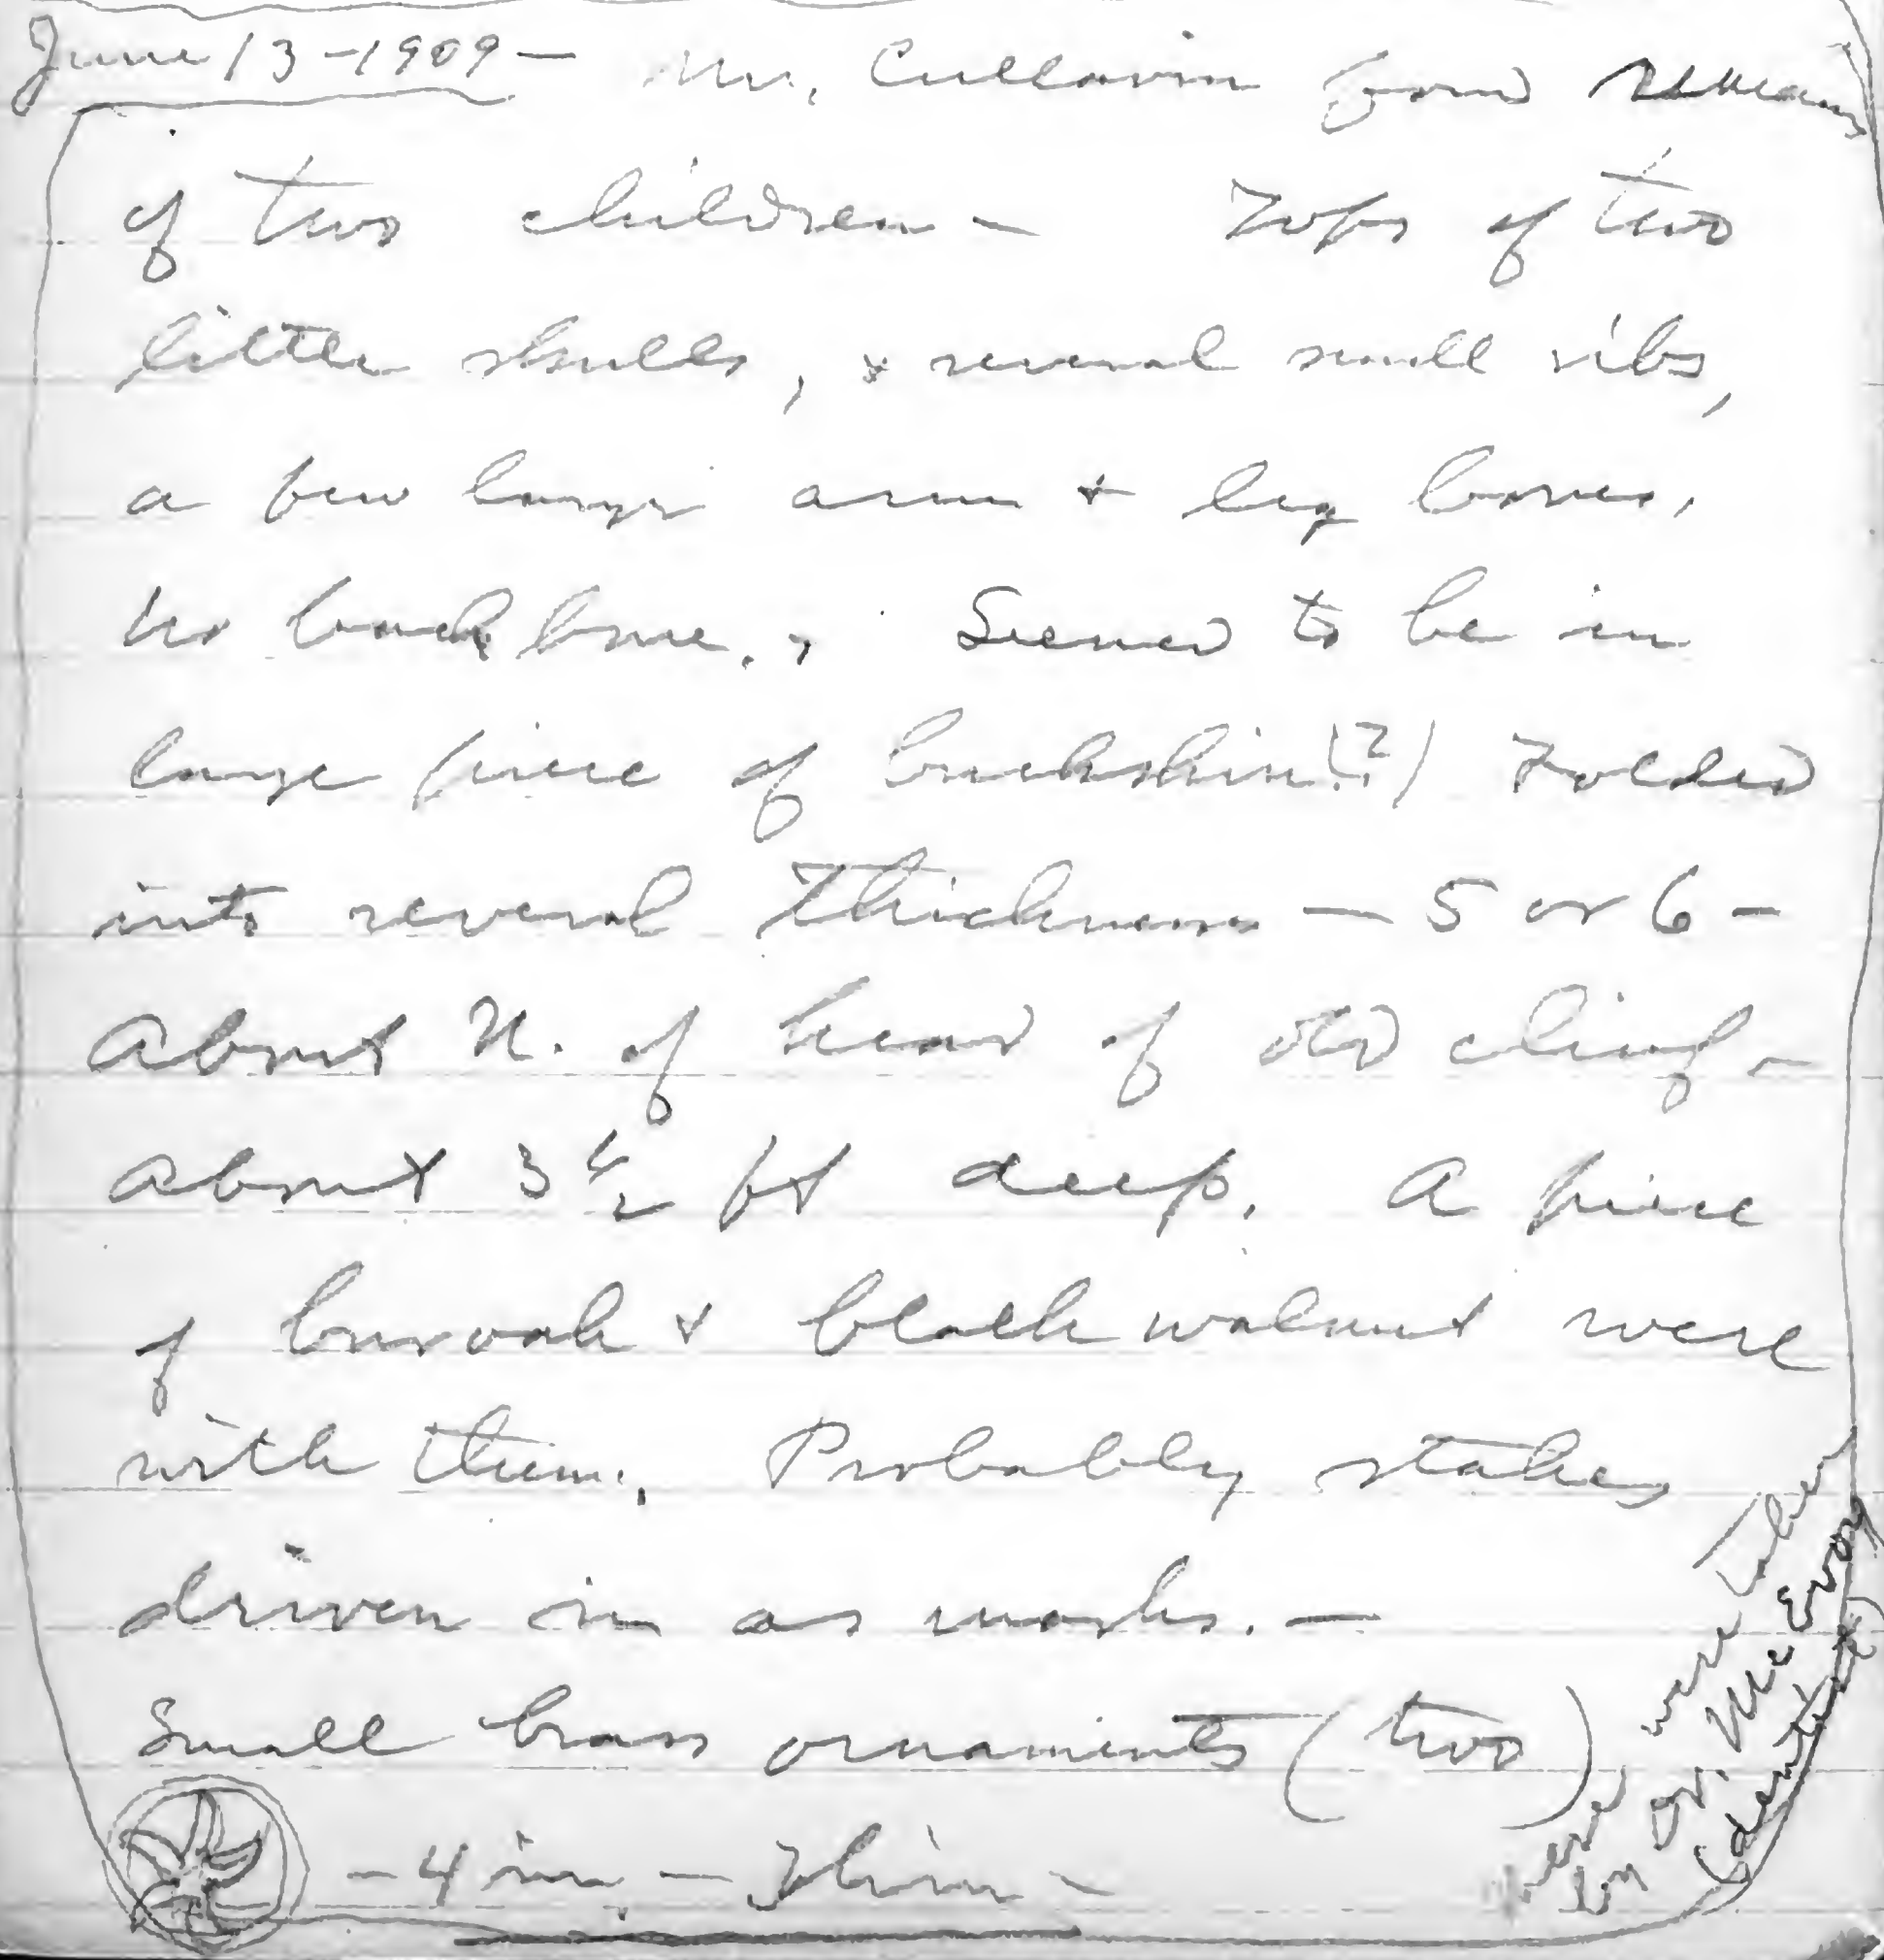 June 13 - 1909 - Mr. Cullavin found remains
of two children - Tops of two
little skulls, & several small ribs,
a few large arm & leg bones,
no back bone. Seemed to be in
large piece of buckskin (?) Folded
into several thickness — 5 or 6 -
About N. of head of old chief -
about 3 1/2 ft deep. A piece
of bur oak & black walnut were
with them. Probably stakes
driven in as marks. —
Small brass ornaments (two)
- 4 in - Thin -
here were taken
by Dr. McEvoy
(dentist)